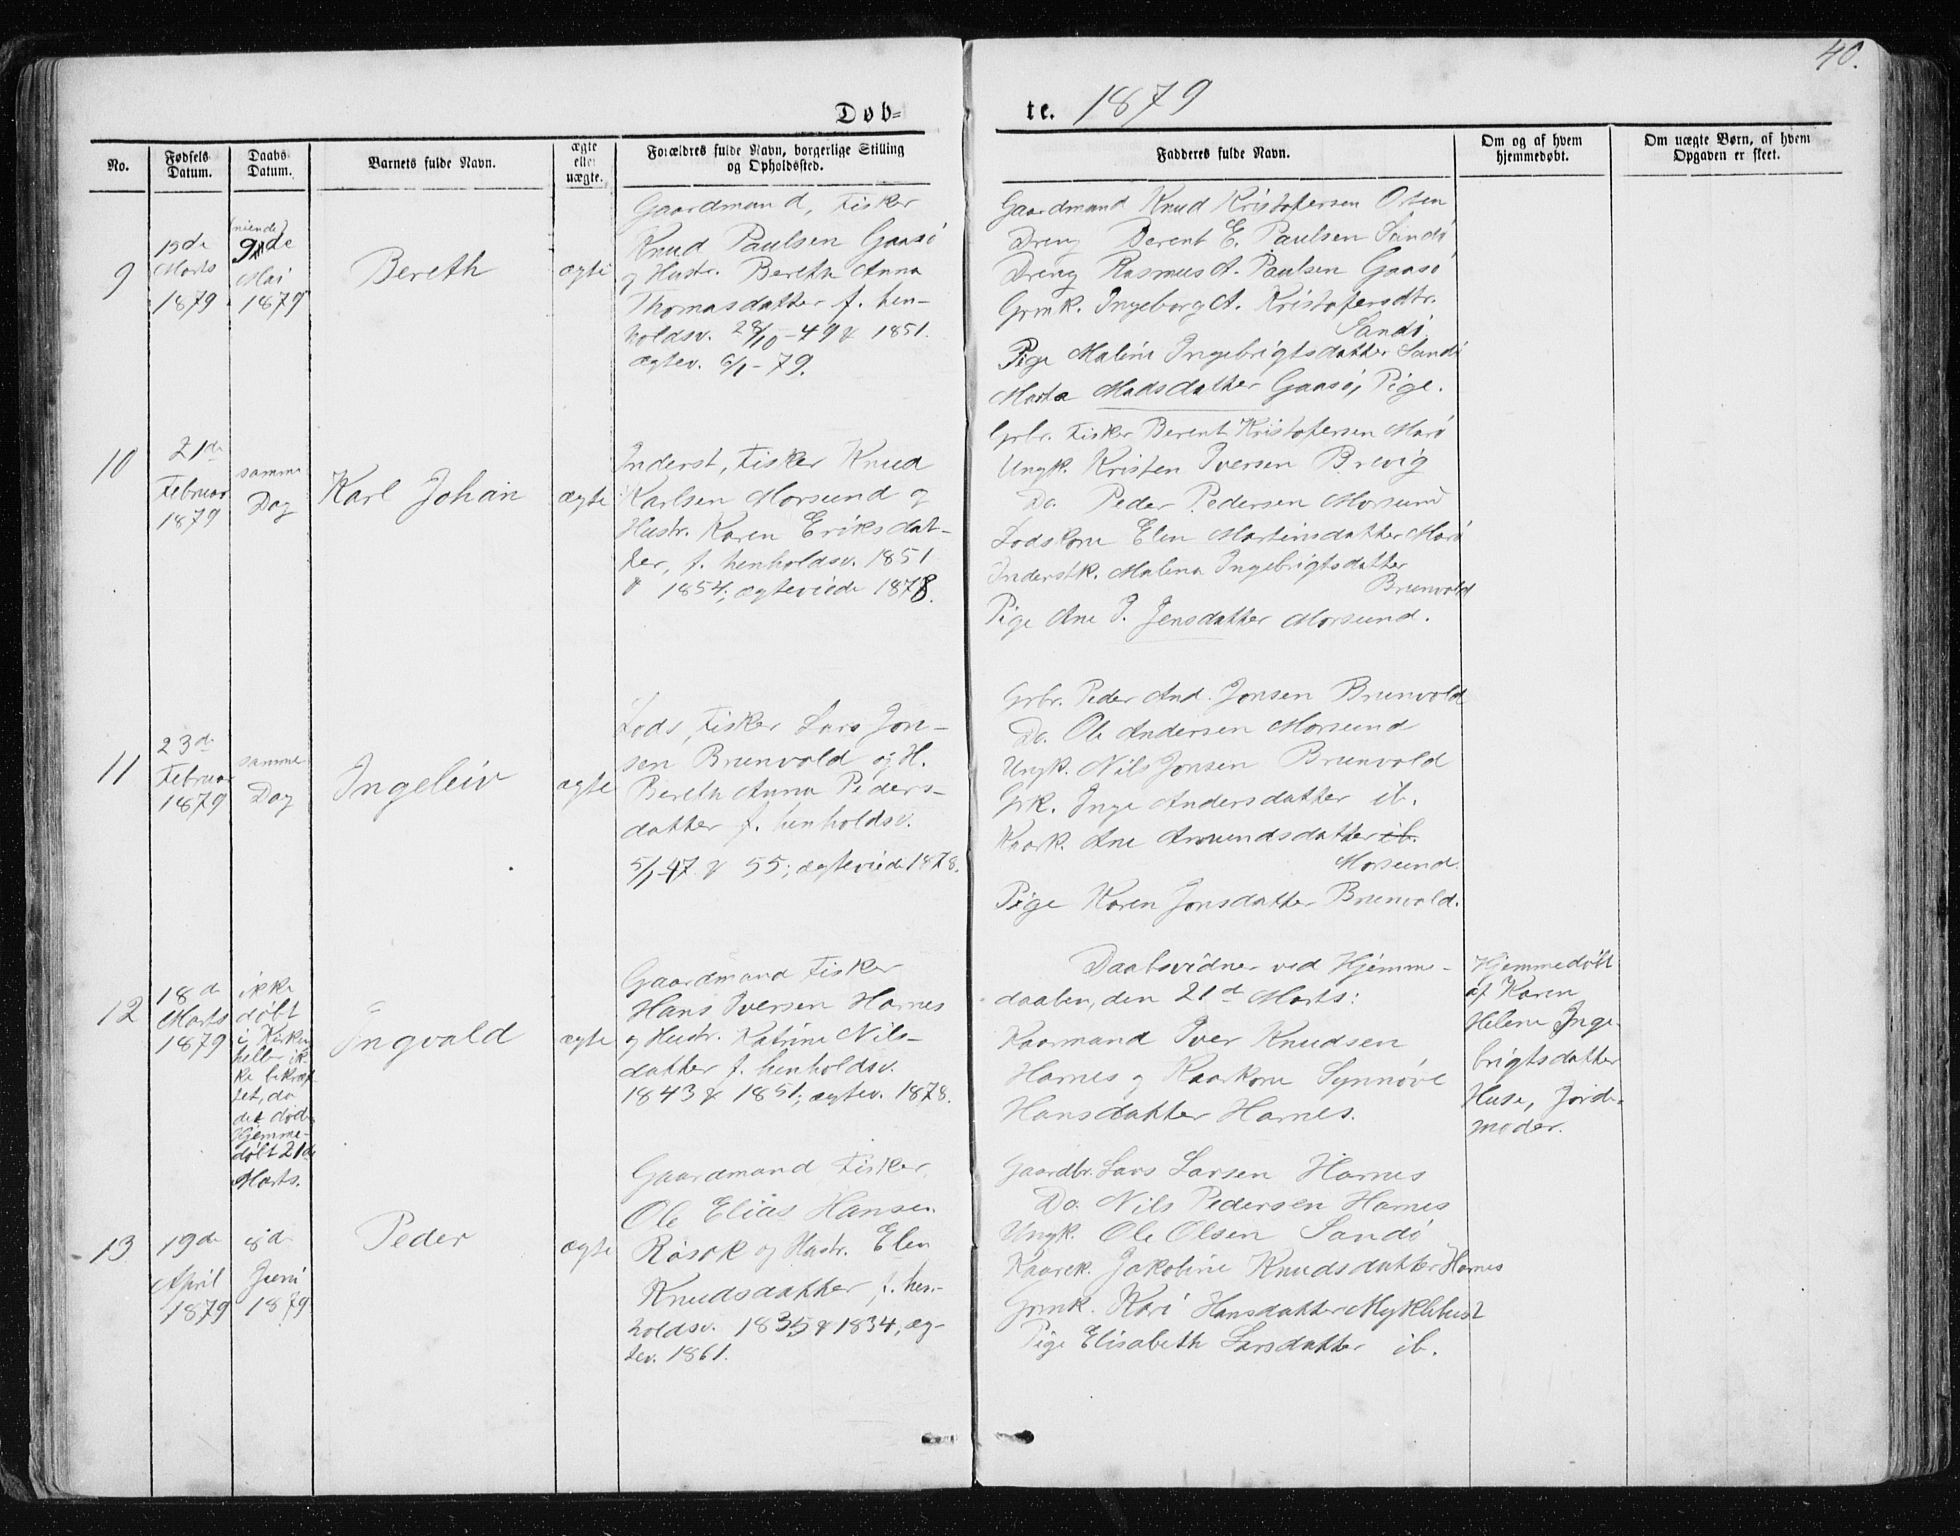 40.
Døb-
te. 1879
No.
Fødsels
Datum.
Daabs
Datum.
Barnets fulde Navn.
ægte
eller
uægte.
Forældres fulde Navn, borgerlige Stilling
og Opholdssted.
Fadderes fulde Navn.
Om og af hvem
hjemmedøbt.
Om uægte Børn, af hvem
Opgaven er skeet.
9
19de
Marts
1879
(niende)
9de
Mai
1879
Bereth
ægte
Gaardmand, Fisker
Knud Paulsen Gaasø
og Hustr. Bereth Anna
Thomasdatter f. hen-
holdsv. 28/10-49 & 1851.
ægtev. 6/1-79.
Gaardmand Knud Kristofersen Orten
Dreng Berent E. Paulsen Sandø
Dreng Rasmus A. Paulsen Gaasø
Grmk. Ingeborg A. Kristofersdtr.
Sandø.
Pige Maline Ingebrigtsdatter Sandø
Marta Madsdatter Gaasø, Pige.
10
21de
Februar
1879
samme
Dag
Karl Johan
ægte
Inderst, Fisker Knud
Karlsen Morsund og
Hustr. Karen Eriksdat-
ter, f. henholdsv. 1851
" 1854; ægteviede 1878.
Grbr. Fisker Berent Kristofersen Marø
Ungk. Kristen Iversen Brevig
Do. Peder Pedersen Morsund
Lodskone Elen Martinsdatter Marø
Inderstk. Malena Ingebrigtsdatter
Brunvold
Pige Ane J. Jensdatter Morsund.
11
23de
Februar
1879
samme
Dag
Ingeleiv
ægte
Lods, Fisker Lars Jon-
sen Brunvold og H.
Bereth Anna Peders-
datter f. henholdsv.
5/1-47 & 55; ægteviede 1878.
Grbr. Peder And. Jonsen Brunvold
Do. Ole Andersen Morsund
Ungk. Nils Jonsen Brunvold
Grk. Inge Andersdatter ib.
Kaark. Ane Amundsdatter ib.
Morsund.
Pige Karen Jonsdatter Brunvold.
12
18de
Marts
1879
ikke
døbt
i Kirken
heller ik-
ke bekræf-
tet, da
det døde
Hjemme-
døbt 21de
Marts.
Ingvald
ægte
Gaardmand Fisker
Hans Iversen Harnes
og Hustr. Katrine Nils-
datter f. henholdsv.
1843 & 1851; ægtev. 1878.
Daabsvidner ved Hjemme-
daaben, den 21de Marts:
Kaarmand Iver Knudsen
Harnes og Kaarkone Synnøve
Hansdatter Harnes.
Hjemmedøbt
af Karen
Helene Inge-
brigtsdatter
Huse, Jorde-
moder.
13
19de
April
1879
8de
Juni
1879.
Peder
ægte
Gaardmand Fisker
Ole Elias Hansen
Røsok og Hustr. Elen
Knudsdatter, f. hen-
holdsv. 1835 & 1834, æg-
tev. 1861.
Gaardbr. Lars Larsen Harnes
Do. Nils Pedersen Harnes
Ungk. Ole Olsen Sandø
Kaarek. Jakobine Knudsdatter Harnes
Grmk. Kari Hansdatter Myklebust
Pige Elisabeth Larsdatter ib.